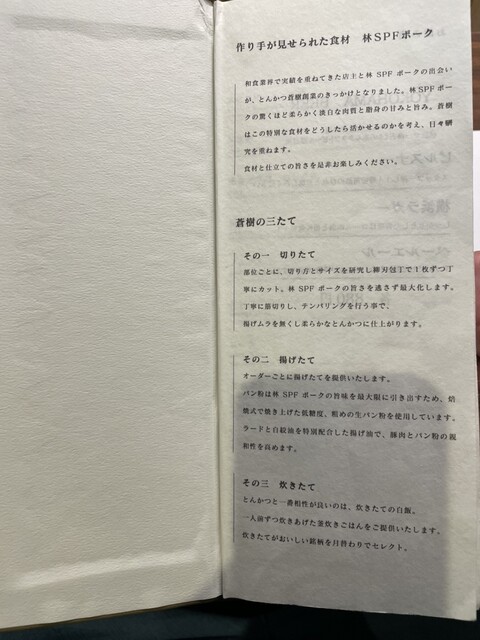 作り手が見せられた食材　林SPFポーク
和食業界で実績を重ねてきた店主と林 SPF ポークの出会い
が、とんかつ蒼樹創業のきっかけとなりました。林 SPF ポー
クの驚くほど柔らかく淡白な肉質と脂身の甘みと旨み。蒼樹
はこの特別な食材をどうしたら活かせるのかを考え、日々研
究を重ねます。
食材と仕立ての旨さを是非お楽しみください。
蒼樹の三たて
その一　切りたて
部位ごとに、切り方とサイズを研究し柳刃包丁で1枚ずつ丁
寧にカット。林 SPF ポークの旨さを逃さず最大化します。
丁寧に筋切りし、テンパリングを行う事で、
揚げムラを無くし柔らかなとんかつに仕上がります。
その二　揚げたて
オーダーごとに揚げたてを提供いたします。
パン粉は林 SPF ポークの旨味を最大限に引き出すため、焙
焼式で焼き上げた低糖度、粗めの生パン粉を使用しています。
ラードと白絞油を特別配合した揚げ油で、豚肉とパン粉の親
和性を高めます。
その三　炊きたて
とんかつと一番相性が良いのは、炊きたての白飯。
一人前ずつ炊きあげた釜炊きごはんをご提供いたします。
炊きたてがおいしい銘柄を月替わりでセレクト。
YOKOHAMA
ピルス
横浜ラガー
ペールエール
880